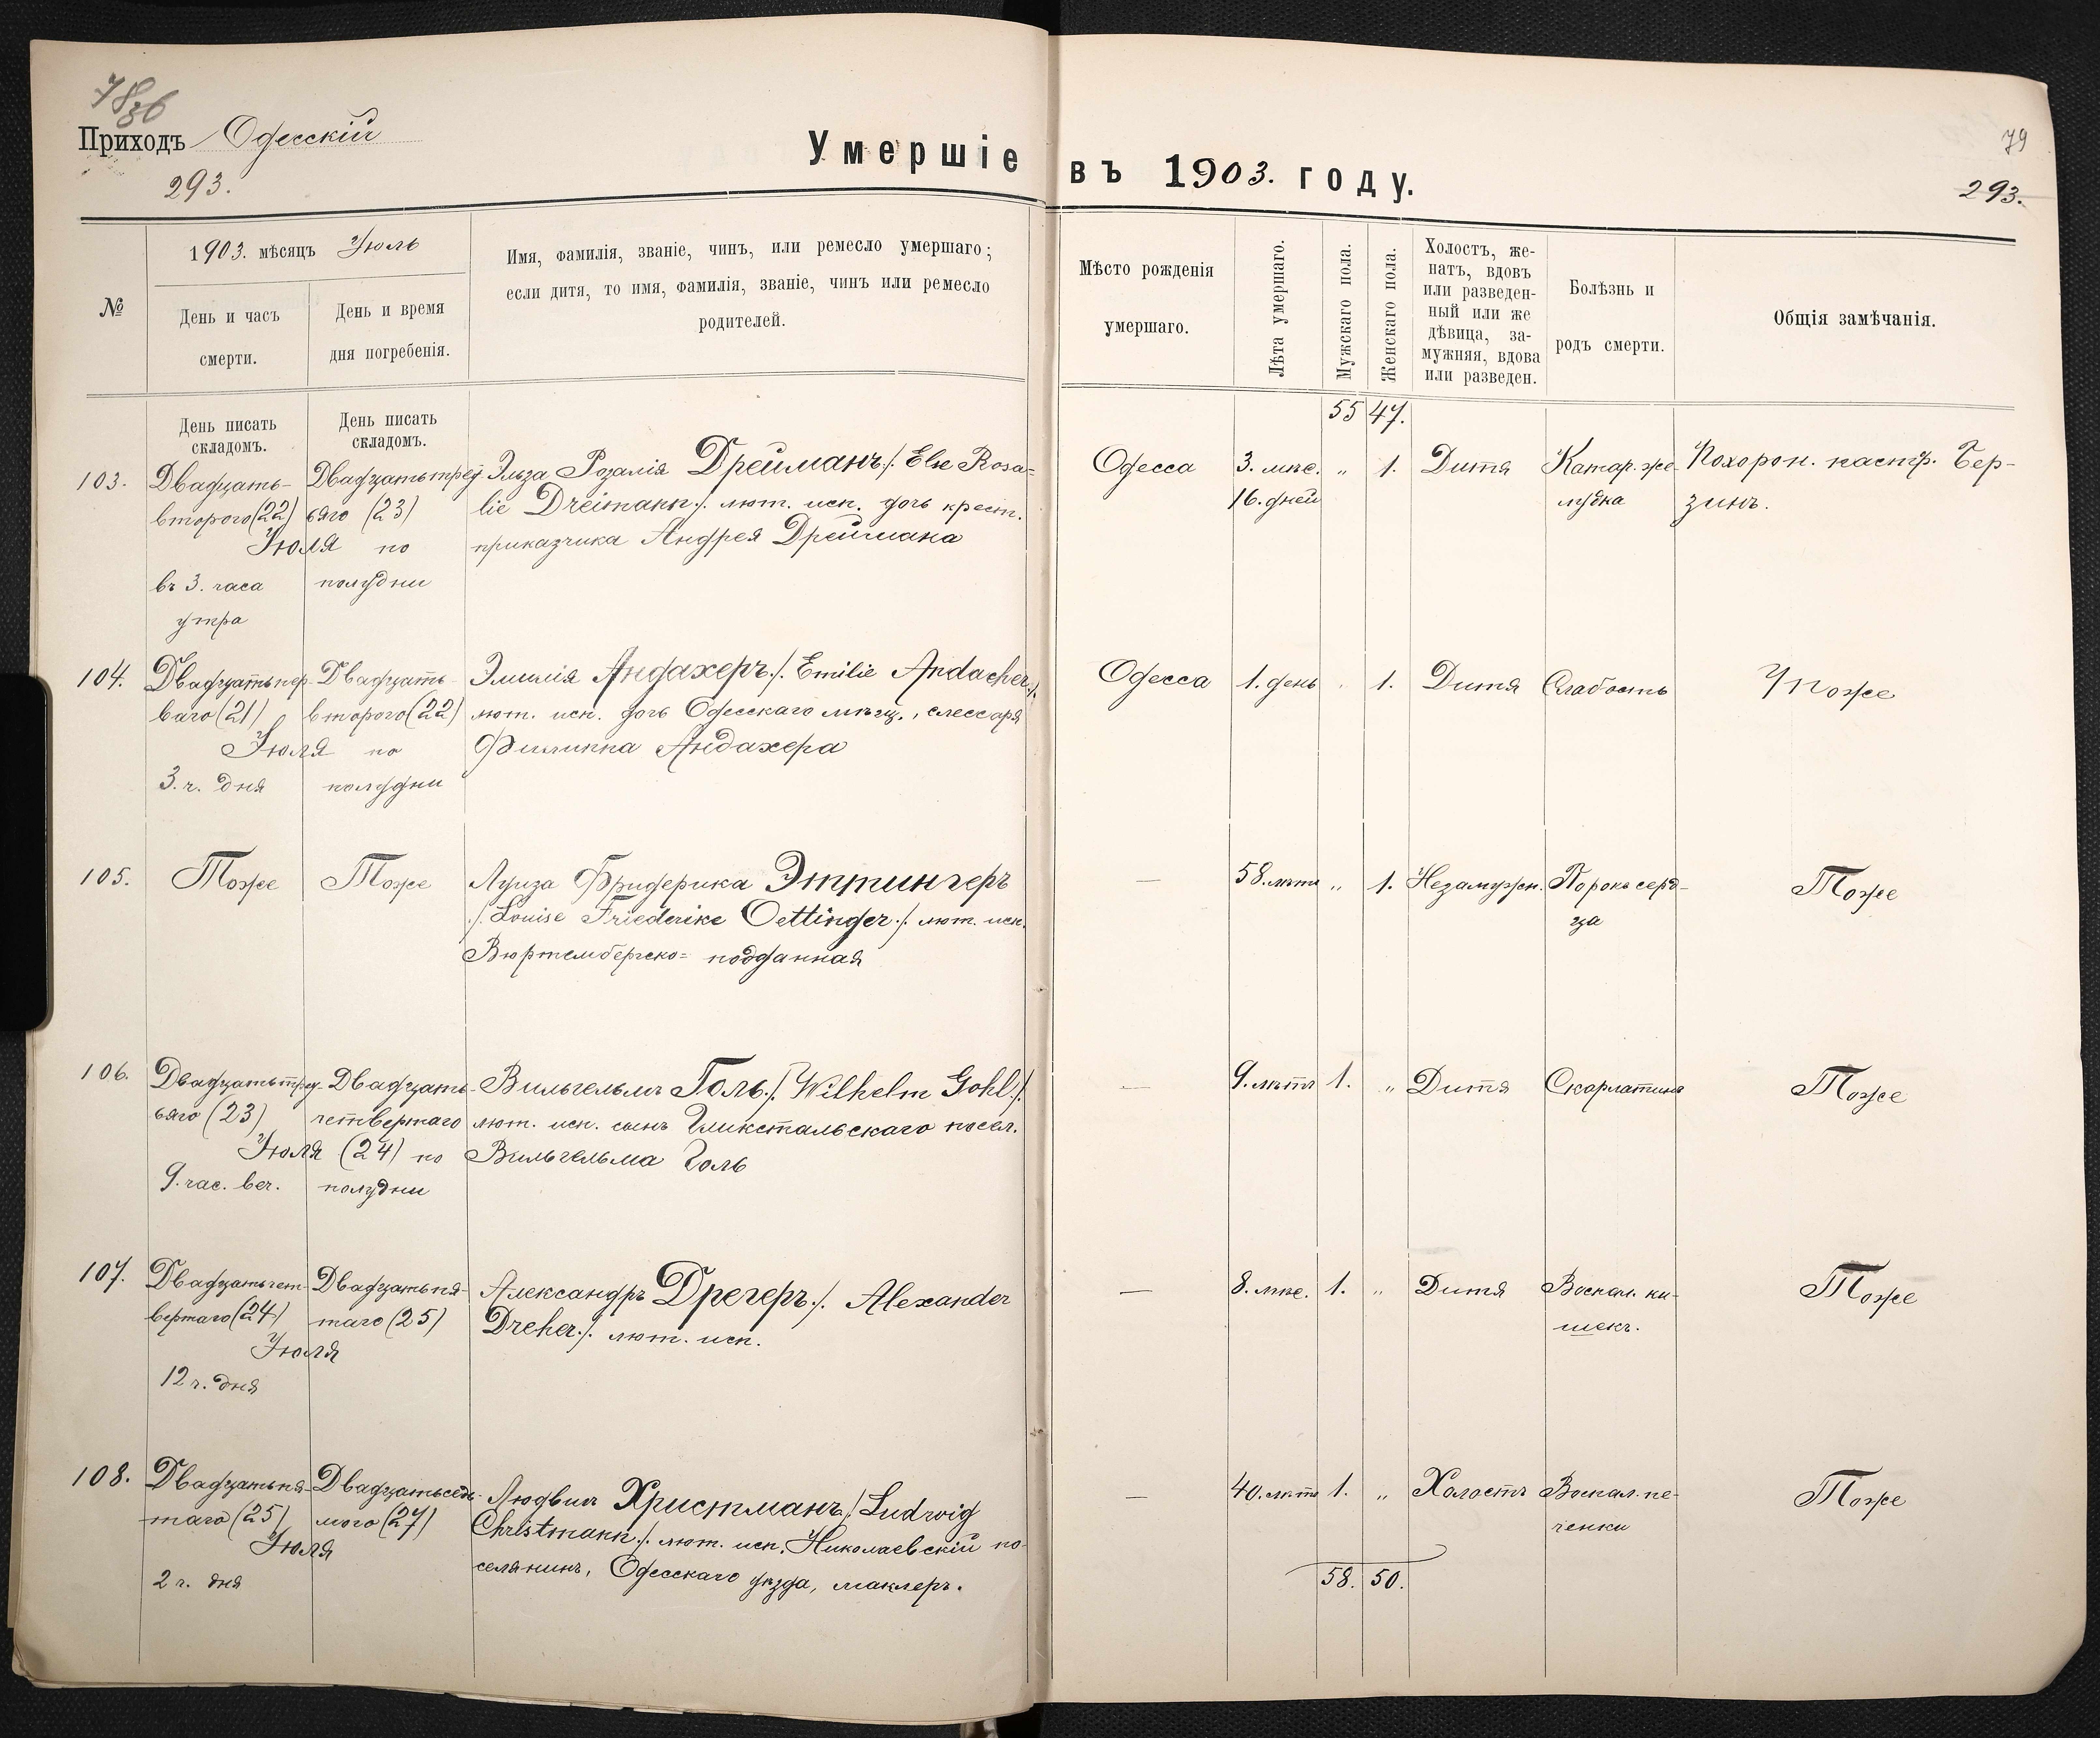 78 зб
Приходъ Одесскій
293.
Умершіе въ 1903. году.
79
293.
№
1903. мѣсяцъ Іюль
День и часъ
смерти.
День и время
дня погребенія.
Имя, фамилія, званіе, чинъ, или ремесло умершаго;
если дитя, то имя, фамилія, званіе, чинъ или ремесло
родителей.
Мѣсто рожденія
умершаго.
Лѣта умершаго.
Мужскаго пола.
Женскаго пола.
Холостъ, же-
натъ, вдовъ
или разведен-
ный или же
дѣвица, за-
мужняя, вдова
или разведен.
Болѣзнь и
родъ смерти.
Общія замѣчанія.
День писать
складомъ.
День писать
складомъ.
55 47.
103.
Двадцать-
второго (22)
Іюля
въ 3. часа
утра
Двадцатьтрет-
ьяго (23)
по
полудни
Эльза Розалія Дрейманъ /. Else Rosa=
lie Dreimann ./. лют. исп. дочь крест.
приказчика Андрея Дреймана
Одесса
3. мѣс.
16. дней
„ 1.
Дитя
Катар. же-
лудка
Похорон. пастр. Бер-
зинъ.
104.
Двадцатьпер-
ваго (21)
Іюля
3. ч. дня
Двадцать-
второго (22)
по
полудни
Эмилія Андахеръ ./. Emilie Andacher ./.
лют. исп. дочь Одесскаго мѣщ., слессаря
Филиппа Андахера
Одесса
1. день
„ 1.
Дитя
Слабость
Тоже
105.
Тоже
Тоже
Луиза Фридерика Эттингеръ
./. Louise Friederike Oettinger ./. лют. исп.
Вюртембергско= подданная
—
58. лѣтъ
„ 1.
Незамужн.
Порокъ серд-
ца
Тоже
106.
Двадцатьтрет-
ьяго (23)
Іюля
9. час. веч.
Двадцать-
четвертаго
(24) по
полудни
Вильгельмъ Голь ./. Wilhelm Gohl ./.
лют. исп. сынъ Гликстальскаго посел.
Вильгельма Голь
—
9. лѣтъ
1. „
Дитя
Скарлатина
Тоже
107.
Двадцатьчет-
вертаго (24)
Іюля
12 ч. дня
Двадцатьпя-
таго (25)
Александръ Дрегеръ ./. Alexander
Dreher ./. лют. исп.
—
8. мѣс.
1. „
Дитя
Воспал. ки-
шекъ.
Тоже
108.
Двадцатьпя-
таго (25)
Іюля
2 ч. дня
Двадцатьседь-
мого (27)
Людвигъ Христманъ /. Ludwig
Christmann ./. лют. исп. Николаевскій по-
селянинъ, Одесскаго уѣзда, маклеръ.
—
40. лѣтъ
1. „
Холостъ
Воспал. пе-
ченки
Тоже
58. 50.